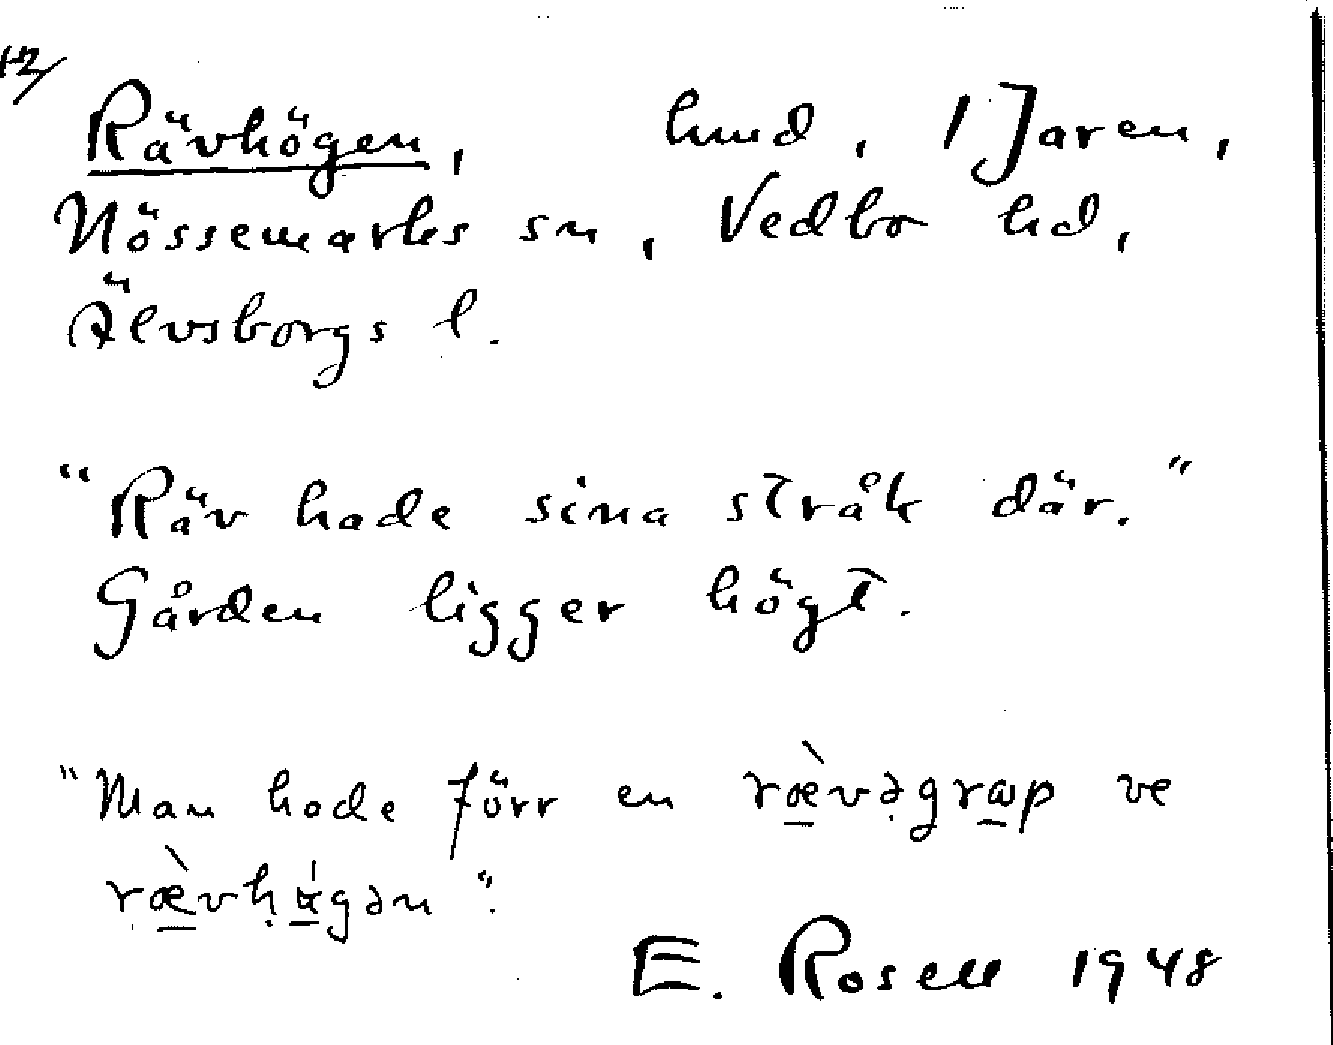 12/
Rävhögen, hmd, 1 Jaren,
Nössemarks sn, Vedbo hd,
Älvsborgs l.
"Räv hade sina stråk där."
Gården ligger högt.
"Man hade förr en ræ̀vəgrap ve
E. Rosell 1948